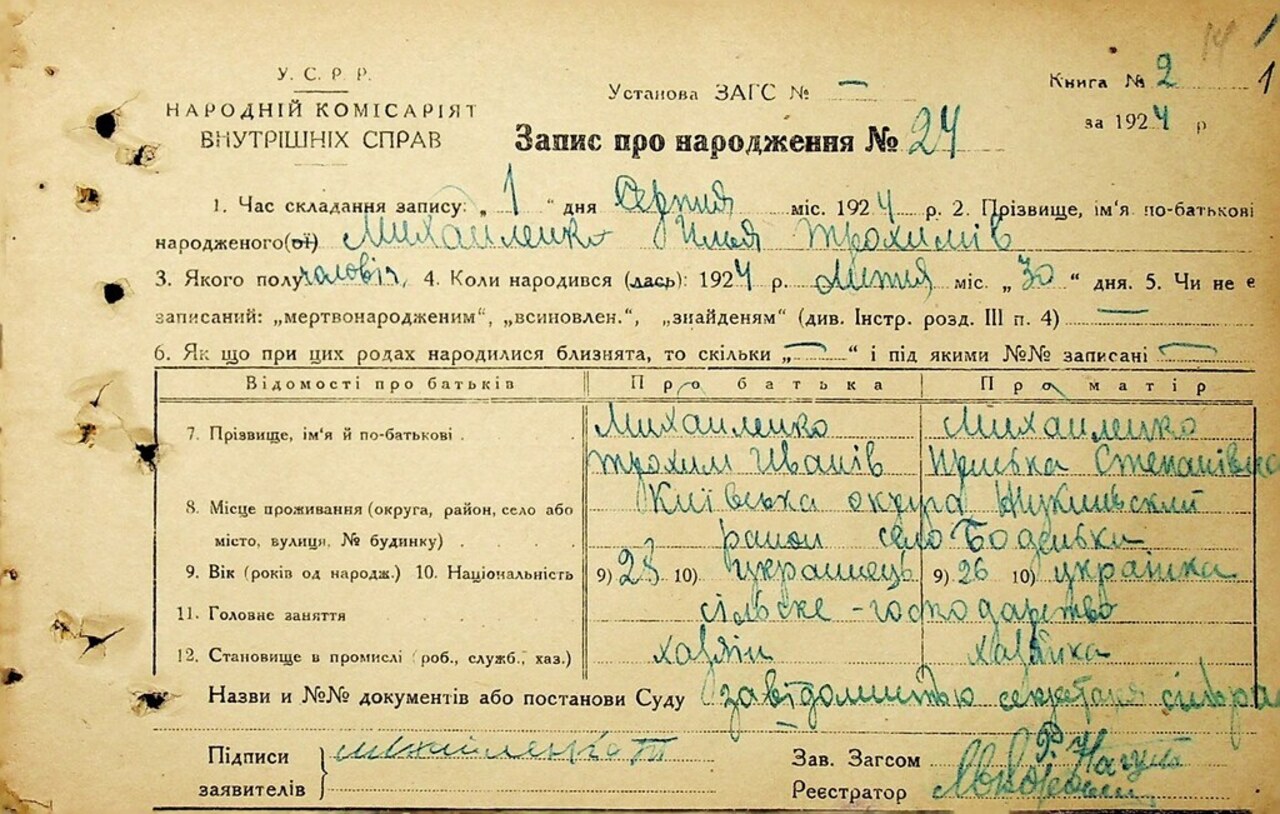 14 1
У. С. Р. Р.
НАРОДНІЙ КОМІСАРІЯТ
ВНУТРІШНІХ СПРАВ
Установа ЗАГС № —
Книга № 2 1
за 1924 р
Запис про народження № 24
1. Час складання запису: „ 1 “ дня Серпня міс. 1924 р. 2. Прізвище, ім'я по-батькові
народженого(ої) Михайленко Илья Трохимів
3. Якого полу чоловіч. 4. Коли народився (лась): 1924 р. Липня міс. „ 30 “ дня. 5. Чи не є
записаний: „мертвонародженим“, „всиновлен.“, „знайденям“ (див. Інстр. розд. III п. 4) —
6. Як що при цих родах народилися близнята, то скільки „ — “ і під якими №№ записані —
Відомості про батьків Про батька Про матір
7. Прізвище, ім'я й по-батькові . Михайленко Михайленко
Трохим Іванів Приська Степанівна
8. Місце проживання (округа, район, село або Київська округа Жукинський
місто, вулиця, № будинку) . район село Боденьки
9. Вік (років од народж.) 10. Національність 9) 28 10) українець 9) 26 10) українка
11. Головне заняття сільске-господарство
12. Становище в промислі (роб., служб., хаз.) хазяїн хазяйка
Назви и №№ документів або постанови Суду за відомистью секретаря сільра
Підписи Михайленко Т
заявителів
Зав. Загсом
Реєстратор